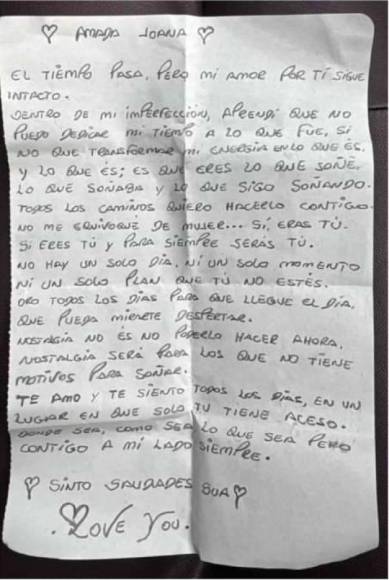 ♡ AMADA JOANA ♡
EL TIEMPO PASA, PERO MI AMOR POR TÍ SIGUE
INTACTO.
DENTRO DE MI IMPERFECCIÓN, APRENDÍ QUE NO
PUEDO DEDICAR MI TIEMPO A LO QUE FUE, SI
NO QUE TRANSFORMAR MI ENERGIA EN LO QUE ÉS,
Y LO QUE ÉS; ES QUE ERES LO QUE SOÑÉ,
LO QUE SOÑABA Y LO QUE SIGO SOÑANDO.
TODOS LOS CAMIÑOS QUIERO HACERLO CONTIGO.
NO ME EQUIVOQUÉ DE MUJER... SÍ, ERAS TÚ.
SI ERES TÚ Y PARA SIEMPRE SERÁS TÚ.
NO HAY UN SOLO DIA, NI UN SOLO MOMENTO
NI UN SOLO PLAN QUE TÚ NO ESTÉS.
ORO TODOS LOS DIAS PARA QUE LLEGUE EL DIA,
QUE PUEDA DESPERTAR.
NOSTALGIA NO ÉS NO PODERLO HACER AHORA,
NOSTALGIA SERÁ PARA LOS QUE NO TIENE
MOTIVOS PARA SOÑAR.
TE AMO Y TE SIENTO TODOS LOS DIAS, EN UN
LUGAR EN QUE SOLO TU TIENE ACESO.
DONDE SEA, COMO SEA LO QUE SEA PERO
CONTIGO A MI LADO SIEMPRE.
♡ SINTO SAUDADES SUA ♡
♡LOVE YOU.